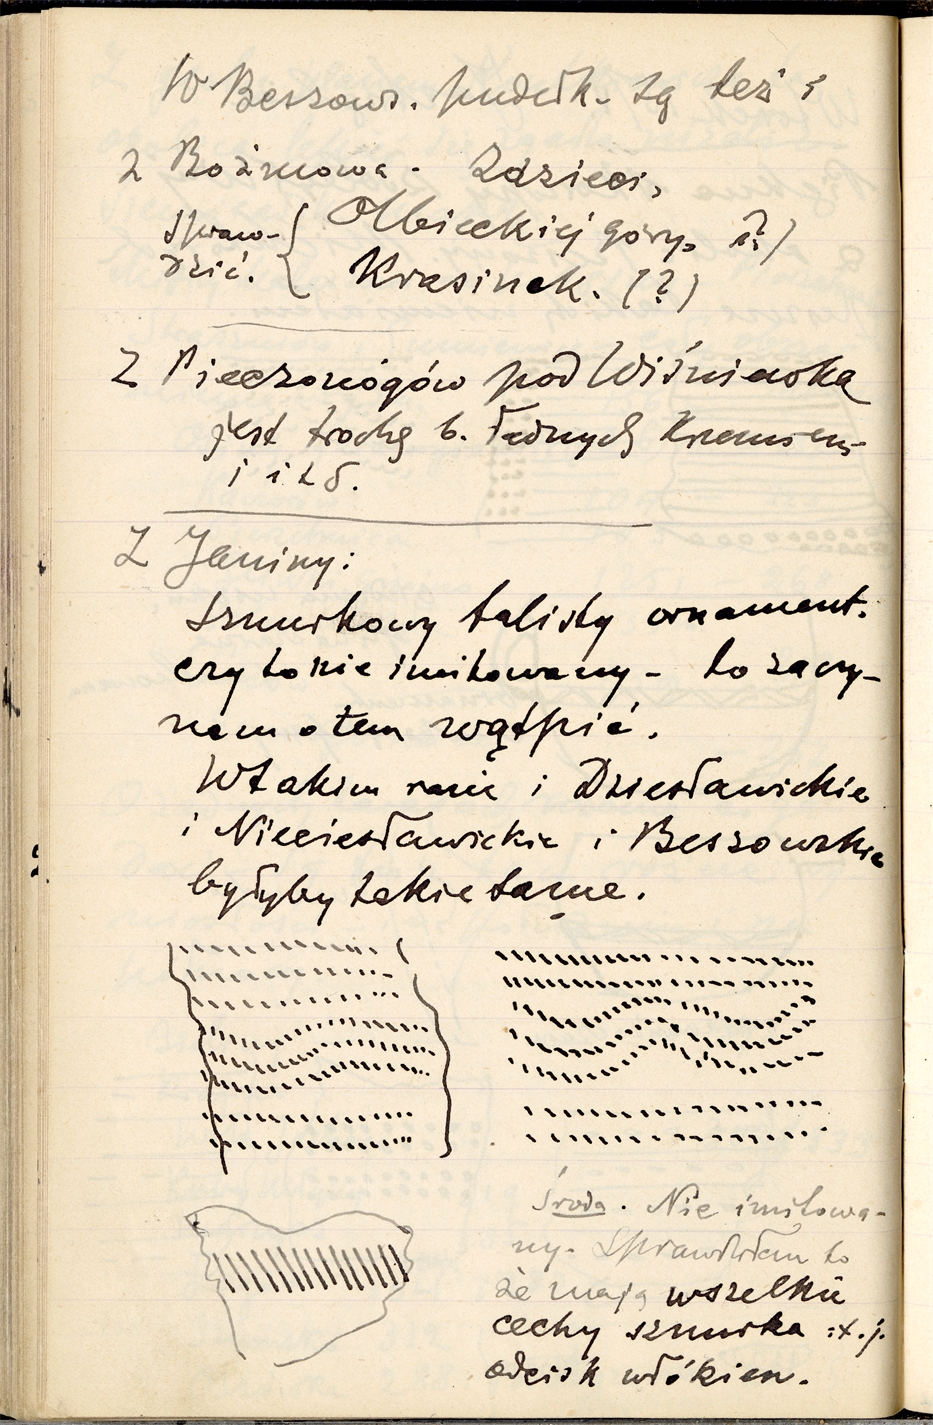 W Beszows. pudełk. są też i
z Bożmowa. Zdzieci,
spraw- { Olbieckiej góry, (?)
dzić. { Krasinek. (?)
Z Pieczonogów pod Wiśniewską
jest trochę b. ładnych krzemien-
i i t d.
Z Janiny:
Sznurkowy talisty ornament.
czy to nie imitowany - to zaczy-
nam o tem wątpić.
W takim razie i Dziesławickie
i Nieciesławickie i Beszowskie
byłyby takie same.
Środa. Nie imitowa-
ny. Sprawdziłem to
że mają wszelkie
cechy sznurka :t.j.
odcisk włókien.